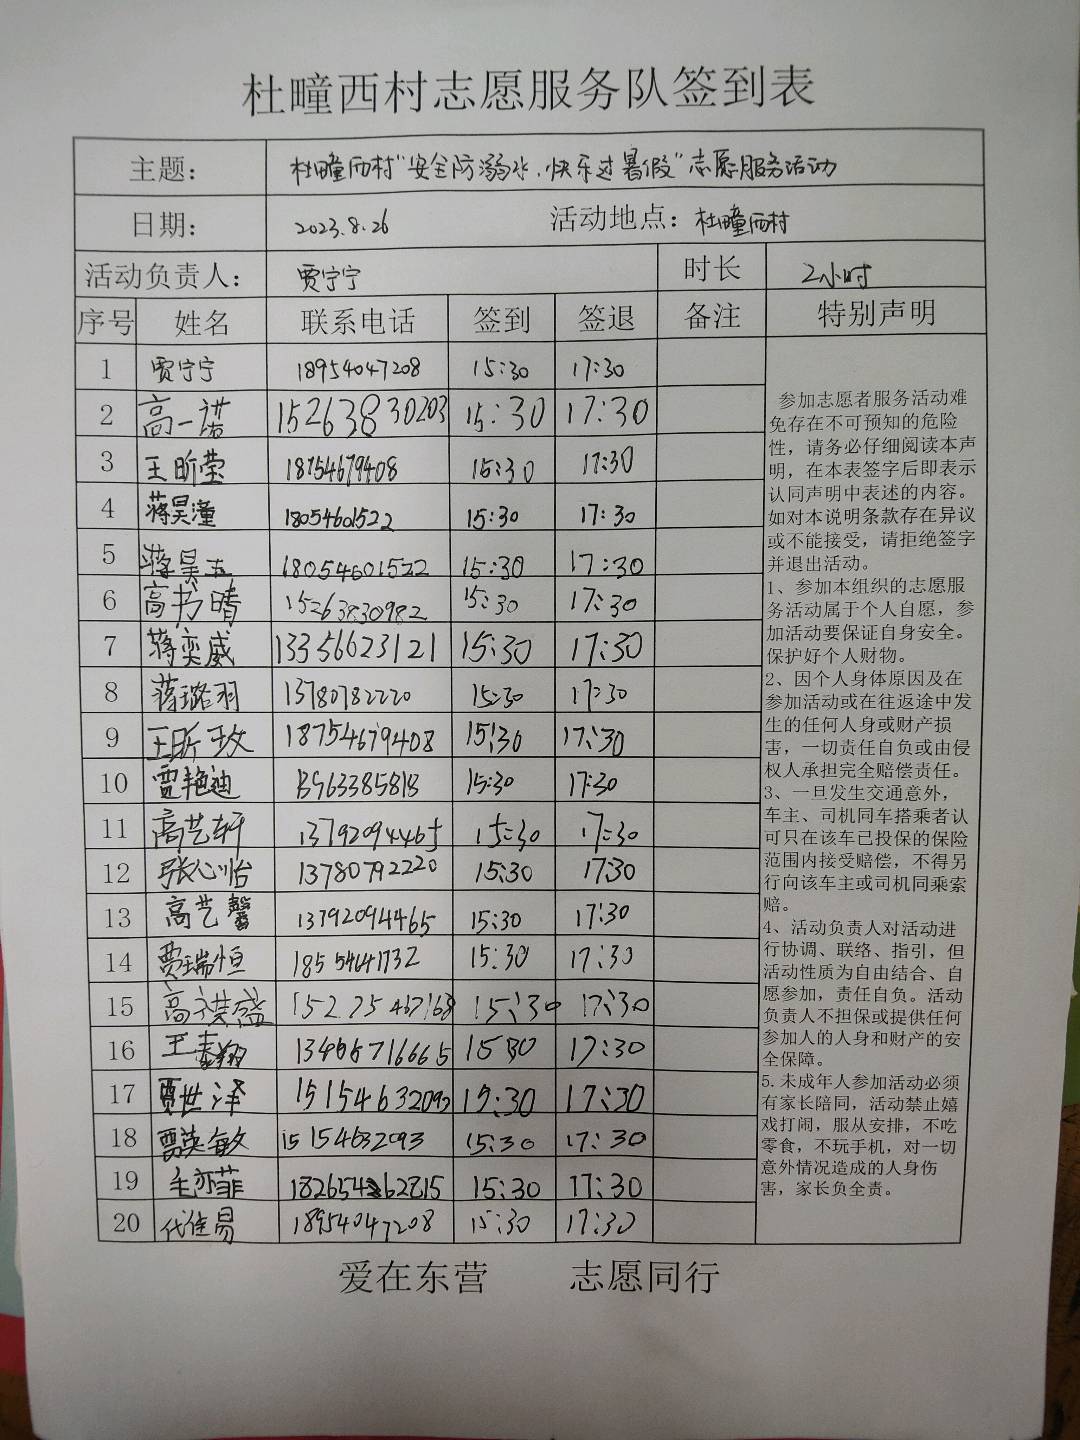 杜疃西村志愿服务队签到表
主题： 杜疃西村“安全防溺水、快乐过暑假”志愿服务活动
日期： 2023.8.26 活动地点：杜疃西村
活动负责人： 贾宁宁 时长 2小时
序号 姓名 联系电话 签到 签退 备注 特别声明
1 贾宁宁 18954047208 15:30 17:30
2 高一诺 15263830203 15:30 17:30
3 王昕莹 18754679408 15:30 17:30
4 蒋昊潼 18054601522 15:30 17:30
5 蒋昊 18054601522 15:30 17:30
6 高书晴 15263830982 15:30 17:30
7 蒋奕威 13356623121 15:30 17:30
8 蒋璐羽 13780782220 15:30 17:30
9 王昕玫 18754679408 15:30 17:30
10 贾艳迪 15:30 17:30
11 高艺轩 13792094465 15:30 17:30
12 张心怡 13780792220 15:30 17:30
13 高艺馨 13792094465 15:30 17:30
14 贾瑞恒 18554641732 15:30 17:30
15 高祺盛 15275467168 15:30 17:30
16 王春翔 15:30 17:30
17 贾世泽 15154632093 15:30 17:30
18 贾英敏 15154632093 15:30 17:30
19 毛亦菲 15:30 17:30
20 代佳易 18954047208 15:30 17:30
参加志愿者服务活动难
免存在不可预知的危险
性，请务必仔细阅读本声
明，在本表签字后即表示
认同声明中表述的内容。
如对本说明条款存在异议
或不能接受，请拒绝签字
并退出活动。
1、参加本组织的志愿服
务活动属于个人自愿，参
加活动要保证自身安全。
保护好个人财物。
2、因个人身体原因及在
参加活动或在往返途中发
生的任何人身或财产损
害，一切责任自负或由侵
权人承担完全赔偿责任。
3、一旦发生交通意外，
车主、司机同车搭乘者认
可只在该车已投保的保险
范围内接受赔偿，不得另
行向该车主或司机同乘索
赔。
4、活动负责人对活动进
行协调、联络、指引，但
活动性质为自由结合、自
愿参加，责任自负。活动
负责人不担保或提供任何
参加人的人身和财产的安
全保障。
5.未成年人参加活动必须
有家长陪同，活动禁止嬉
戏打闹，服从安排，不吃
零食，不玩手机，对一切
意外情况造成的人身伤
害，家长负全责。
爱在东营 志愿同行